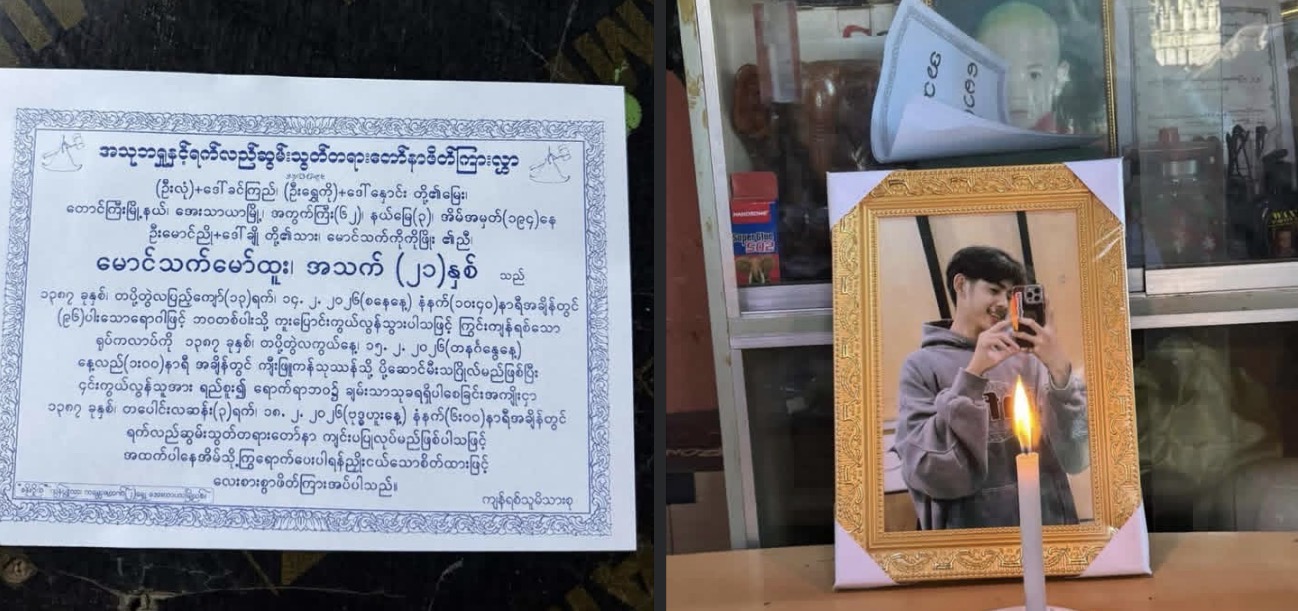 အသုဘရှုနှင့်ရက်လည်ဆွမ်းသွတ်တရားတော်နာဖိတ်ကြားလွှာ
(ဦးလုံ)+ဒေါ်ခင်ကြည်၊ (ဦးရွှေကို)+ဒေါ်နှောင်း တို့၏မြေး၊
တောင်ကြီးမြို့နယ်၊ အေးသာယာမြို့၊ အကွက်ကြီး(၆၂)၊ နယ်မြေ(၃)၊ အိမ်အမှတ်(၁၉၄)နေ
ဦးမောင်ညို+ဒေါ်ချို တို့၏သား၊ မောင်သက်ကိုကိုဖြိုး ၏ညီ၊
မောင်သက်မော်ထူး၊ အသက် (၂၁)နှစ် သည်
၁၃၈၇ ခုနှစ်၊ တပို့တွဲလပြည့်ကျော်(၁၃)ရက်၊ ၁၄. ၂. ၂၀၂၆(စနေနေ့) နံနက်(၁၀း၄၀)နာရီအချိန်တွင်
(၉၆)ပါးသောရောဂါဖြင့် ဘဝတစ်ပါးသို့ ကူးပြောင်းကွယ်လွန်သွားပါသဖြင့် ကြွင်းကျန်ရစ်သော
ရုပ်ကလာပ်ကို ၁၃၈၇ ခုနှစ်၊ တပို့တွဲလကွယ်နေ့၊ ၁၅. ၂. ၂၀၂၆(တနင်္ဂနွေနေ့)
နေ့လည်(၁း၀၀)နာရီ အချိန်တွင် ကျီးဖြူကန်သုဿန်သို့ ပို့ဆောင်မီးသင်္ဂြိုလ်မည်ဖြစ်ပြီး
၎င်းကွယ်လွန်သူအား ရည်စူး၍ ရောက်ရာဘဝ၌ ချမ်းသာသုခရရှိပါစေခြင်းအကျိုးငှာ
၁၃၈၇ ခုနှစ်၊ တပေါင်းလဆန်း(၃)ရက်၊ ၁၈. ၂. ၂၀၂၆(ဗုဒ္ဓဟူးနေ့) နံနက်(၆း၀၀)နာရီအချိန်တွင်
ရက်လည်ဆွမ်းသွတ်တရားတော်နာ ကျင်းပပြုလုပ်မည်ဖြစ်ပါသဖြင့်
အထက်ပါနေအိမ်သို့ ကြွရောက်ပေးပါရန်ညှိုးငယ်သောစိတ်ထားဖြင့်
လေးစားစွာဖိတ်ကြားအပ်ပါသည်။
ကျန်ရစ်သူမိသားစု
HANDSOME
Super Glue
502